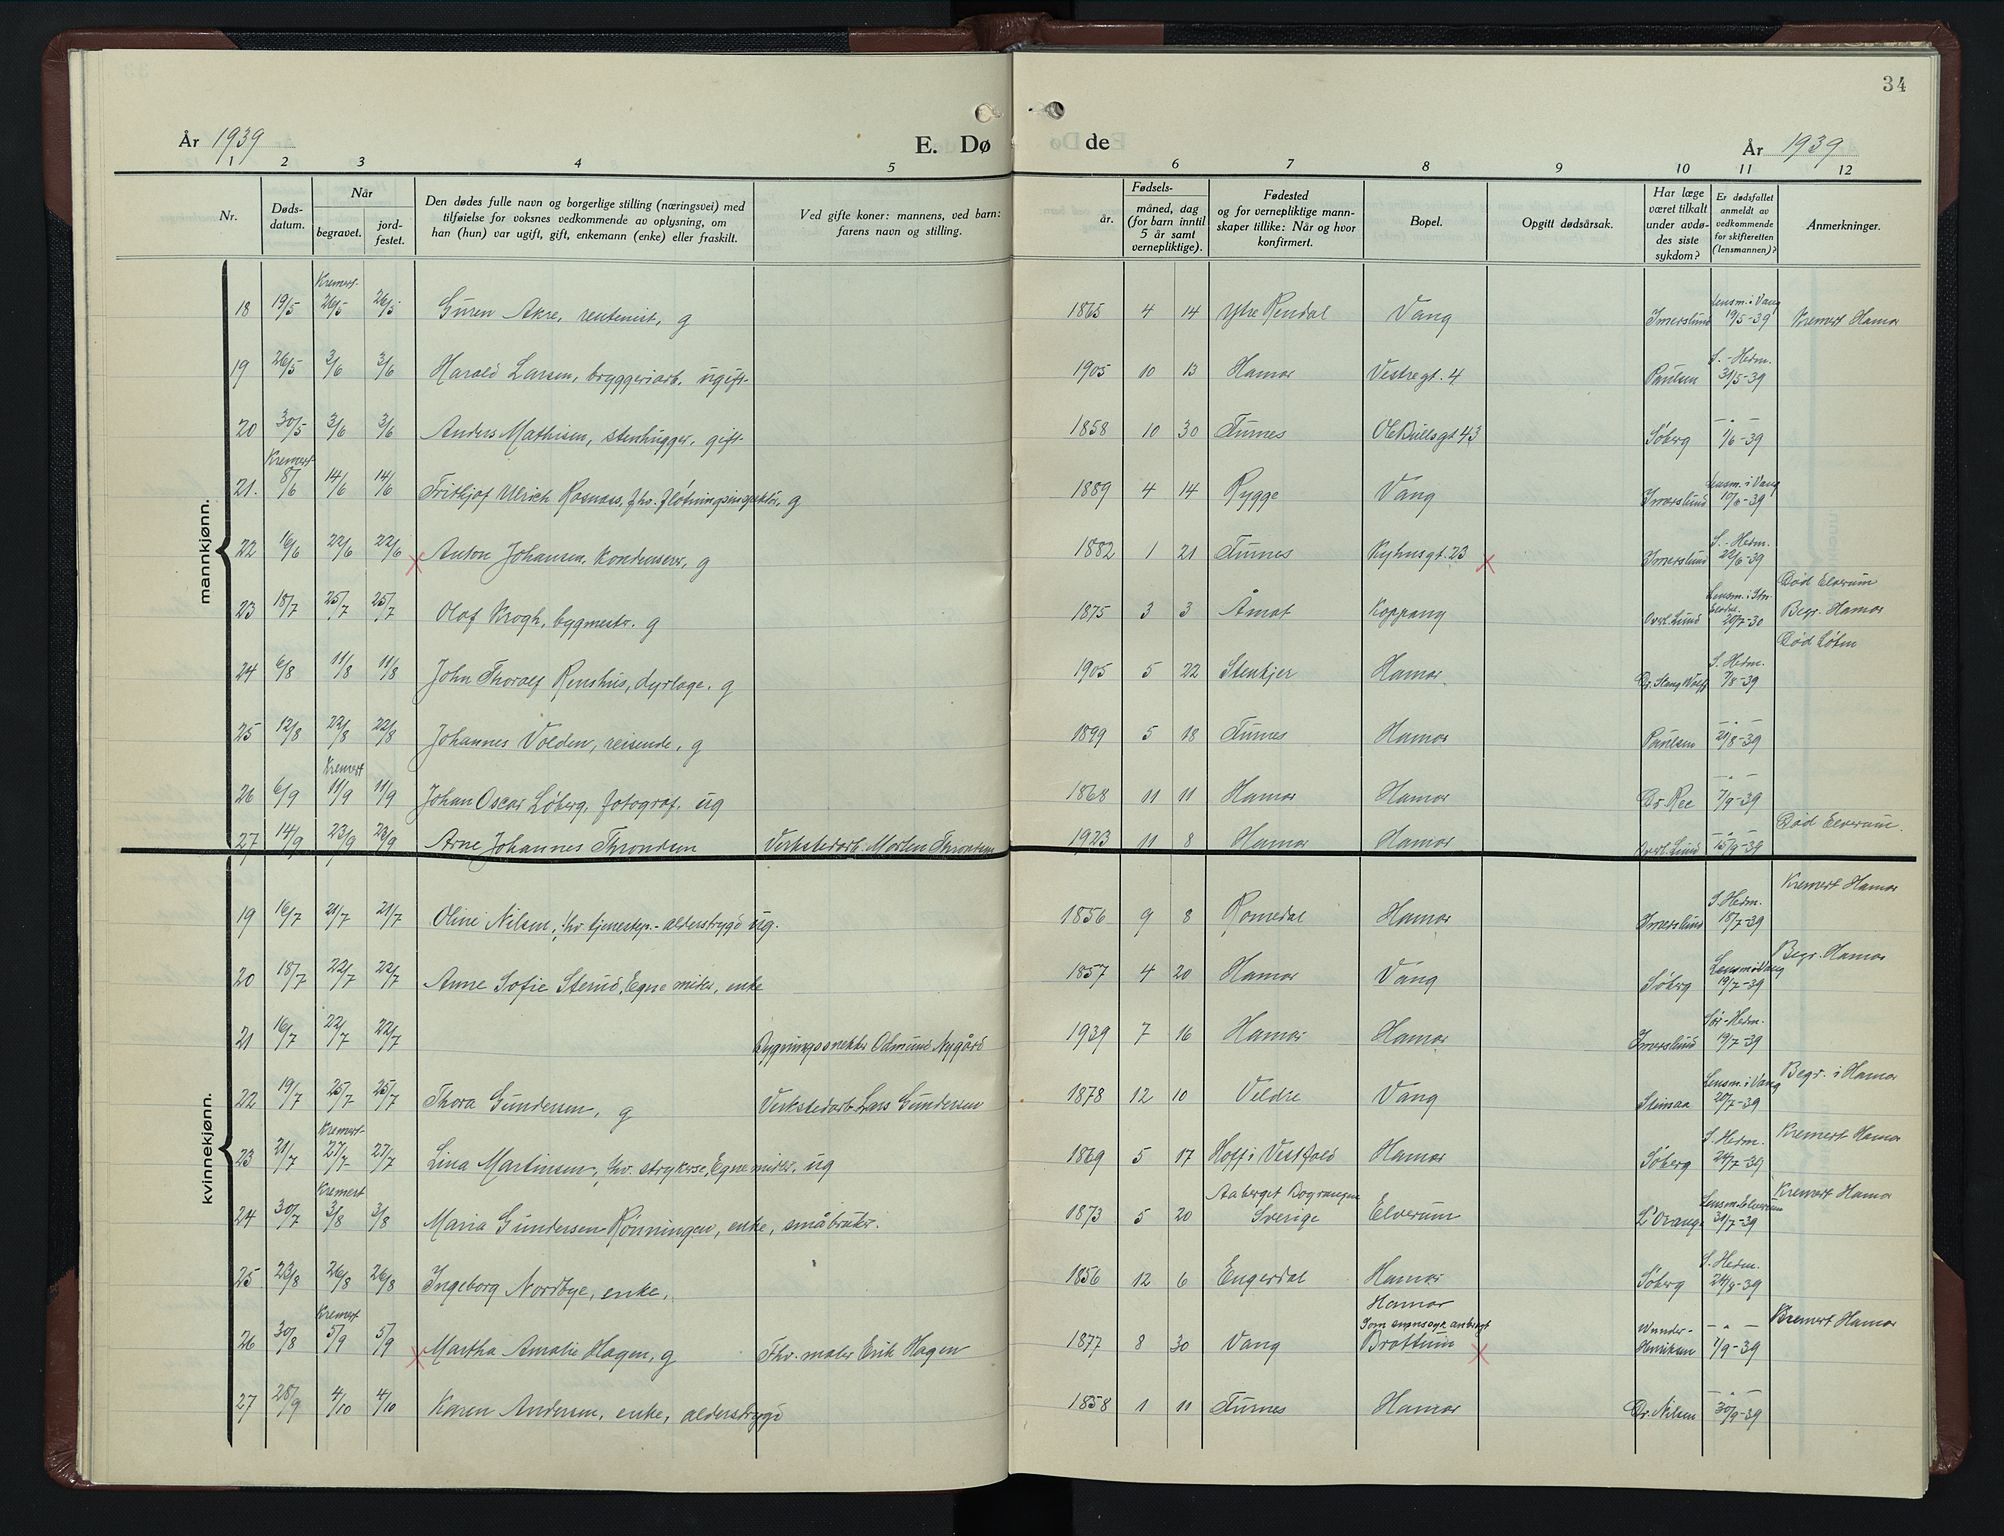 34
År 1939
E. Dø
de
År 1939
1 2 3 4 5 6 7 8 9 10 11 12
Nr.
Døds-
datum.
Når
begravet.
jord-
festet.
Den dødes fulle navn og borgerlige stilling (næringsvei) med
tilføielse for voksnes vedkommende av oplysning, om
han (hun) var ugift, gift, enkemann (enke) eller fraskilt.
Ved gifte koner: mannens, ved barn:
farens navn og stilling.
Fødsels-
år.
måned, dag
(for barn inntil
5 år samt
vernepliktige).
Fødested
og for vernepliktige mann-
skaper tillike: Når og hvor
konfirmert.
Bopel.
Opgitt dødsårsak.
Har læge
været tilkalt
under avdø-
des siste
sykdom?
Er dødsfallet
anmeldt av
vedkommende
for skifteretten
(lensmannen)?
Anmerkninger.
mannkjønn.
Kremert Lensm. i Vang
18 19/5 26/5 26/5 Guren Akre, rentenist, g 1865 4 14 Ytre Rendal Vang Imerslund 19/5-39 Kremert Hamar
S.-Hedm.
19 26/5 3/6 3/6 Harald Larsen, bryggeriarb. ugift 1905 10 13 Hamar Vestregt. 4 Paulsen 31/5-39
20 30/5 3/6 3/6 Anders Mathisen, stenhugger, gift 1858 10 30 Furnes Ole Bullsgt 43 Søberg 1/6-39
Kremert Lensm. i Vang
21. 8/6 14/6 14/6 Frithjof Ulrich Rosnæss, fhv. fløtningsinspektør, g 1889 4 14 Rygge Vang Imerslund 10/6-39
S.-Hedm.
22 16/6 22/6 22/6 x Anton Johansen, kondenserar, g 1882 1 21 Furnes Kyhnsgt. 23 x Imerslund 22/6-39
Død Elverum
23 18/7 25/7 25/7 Olaf Krogh, bygmestr. g 1875 3 3 Åmot Koppang Overl. Lund 20/7-30 Begr. Hamar
Død Løten
S. Hedm.
24 6/8 11/8 11/8 John Thoralf Renshus, dyrlæge, g 1905 5 22 Stenkjer Hamar Dr. Stang Wolff 7/8-39
25 12/8 22/8 22/8 Johannes Volden, reisende, g 1899 5 18 Furnes Hamar Paulsen 21/8-39
Kremert
26 6/9 11/9 11/9 Johan Oscar Løberg, fotograf, ug 1868 11 11 Hamar Hamar Dr. Ree 7/9-39
Død Elverum.
27 14/9 23/9 23/9 Arne Johannes Throndsen Verkstedarb. Morten Throndsen 1923 11 8 Hamar Hamar Overl. Lund 15/9-39
kvinnekjønn.
Kremert Hamar
S. Hedm.
19 16/7 21/7 21/7 Oline Nilsen, fhv. tjenestep.- alderstrygd ug. 1856 9 8 Romedal Hamar Imerslund 18/7-39
Begr. Hamar
Lensm. i Vang
20 18/7 22/7 22/7 Anne Sofie Sterud, Egne midler, enke 1857 4 20 Hamar Vang Søberg 19/7-39
Sør-Hedm.
21 16/7 22/7 22/7 Bygningssnekker Odmund Nygård 1939 7 16 Hamar Hamar Imerslund 19/7-39
Begr. i Hamar
Lensm. i Vang
22 19/7 25/7 25/7 Thora Gundersen, g Verkstedarb. Lars Gundersen 1878 12 10 Veldre Vang Stensaa 20/7-39
Kremert S. Hedm. Kremert Hamar
23 21/7 27/7 27/7 Lina Martinsen, fhv. strykerse, Egne midler, ug 1869 5 17 Hoff i Vestfold Hamar Søberg 24/7-39
Kremert Aaberget Bograngen Lensm. Elverum Kremert Hamar
24 30/7 3/8 3/8 Maria Gundersen Rønningen, enke, småbruker. 1873 5 20 Sverige Elverum L'Orange 31/7-39
S. Hedm.
25 23/8 26/8 26/8 Ingeborg Nordbye, enke, 1856 12 6 Engerdal Hamar Søberg 24/8-39
Hamar
Kremert Som sinnssyk anbragt Wunder- Kremert Hamar
26 30/8 5/9 5/9 x Martha Amalie Hagen, g Fhv. maler Erik Hagen 1877 8 30 Vang Brøttum x Henriksen 1/9-39
27 28/9 4/10 4/10 Karen Andersen, enke, alderstrygd 1858 1 11 Furnes Hamar Dr. Nilsen 30/9-39